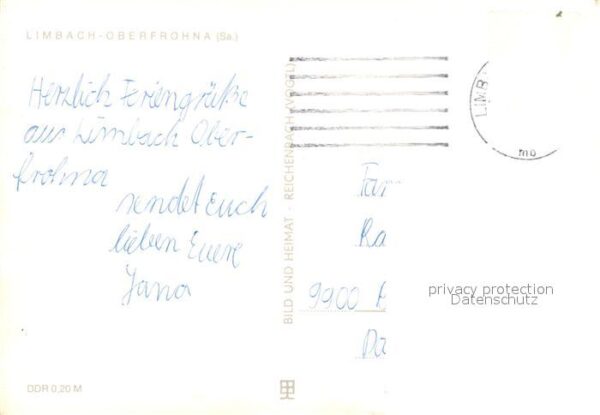 LIMBACH-OBERFROHNA (Sa.)
Herzlich Feriengrüße
aus Limbach Ober-
frohna
sendet Euch
lieben Euere
Jana
DDR 0,20 M
BILD UND HEIMAT · REICHENBACH (VOGTL)
LIMB
mo
Fam
Ra
9900
Da
privacy protection
Datenschutz